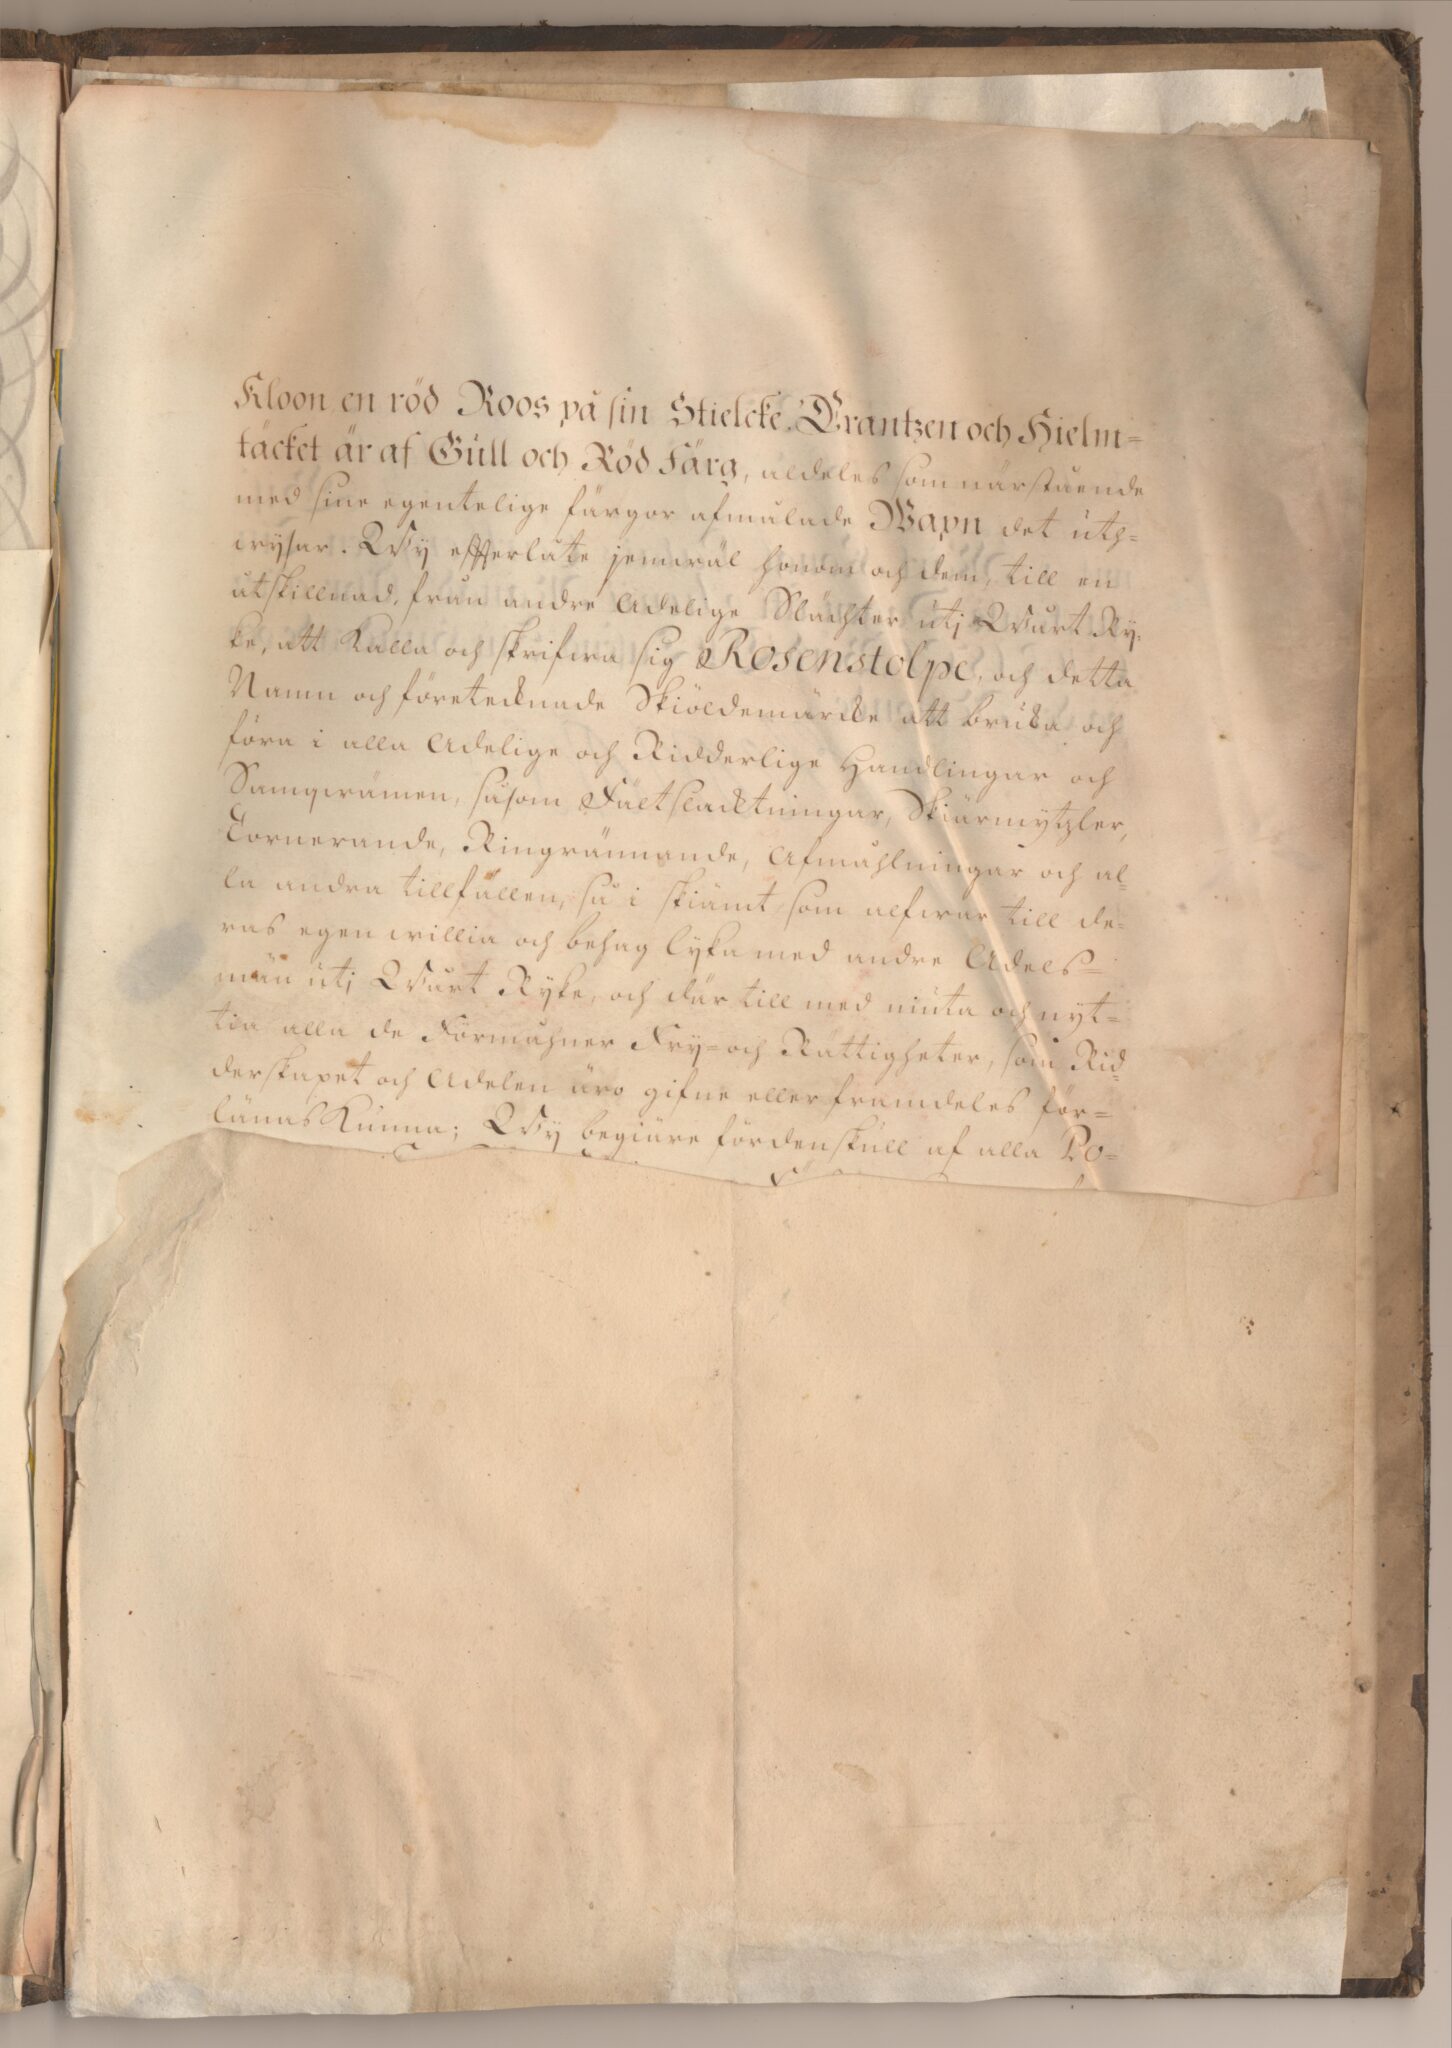 Kloon en röd Roos på sin Stielcke. Crantzen och Hielm=
täcket är af Gull och Röd Färg, aldeles som närstående
med sine egentelige färgor afmålade Wapn det uth=
wysar. Wy efterlåte jemwäl honom och dem, till en
åtskillnad, från andre Adelige Slächter utj Wårt Ry=
ke, att Kalla och skrifwa sig Rosenstolpe, och detta
Namn och företecknade Skiöldemärcke att bruka och
föra i alla Adelige och Ridderlige Handlingar och
Samqwämen, såsom Fältslacktningar, Skiärmytzler,
Tornerande, Ringrännande, Afmåhlningar och al=
la andra tillfällen, så i skiämt som alfwar till de=
ras egen willia och behag lyka med andre Adels=
män utj Wårt Ryke, och där till med niuta och nyt=
tia alla de Förmåhner Fry= och Rättigheter, som Rid=
derskapet och Adelen äro gifne eller framdeles för=
länas Kunna; Wy begiäre fördenskull af alla Po=